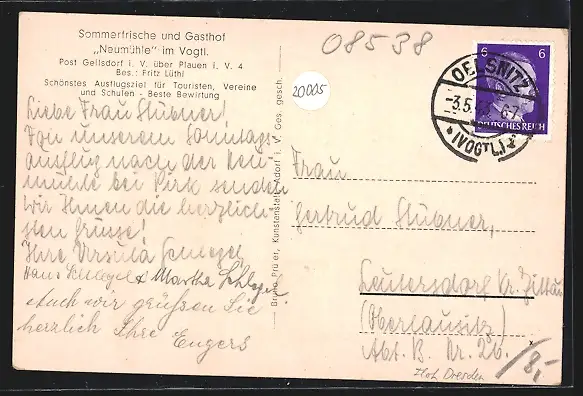 Sommerfrische und Gasthof
„Neumühle" im Vogtl.
Post Geilsdorf i. V. über Plauen i. V. 4
Bes.: Fritz Lüthl
Schönstes Ausflugsziel für Touristen, Vereine
und Schulen - Beste Bewirtung
Liebe Frau Stübner!
Von unserem Sonntags-
ausflug nach der Neu-
mühle bei Pirk senden
wir Ihnen die herzlich-
sten Grüsse!
Ihre Ursula Schlegel
Hans Schlegel & Martha Schlegel
Auch wir grüssen Sie
herzlich Ihre Eugers
Bruno Prüfer, Kunstanstalt, Adorf i. V. Ges. gesch.
08538
20005
6 6
DEUTSCHES REICH
OELSNITZ
-3.5.43 6-7
(VOGTL)
Frau
Gertrud Stübner,
Leutersdorf Kr. Zittau
(Oberlausitz)
Abt. B. Nr. 26.
x
/8,-
Dresden